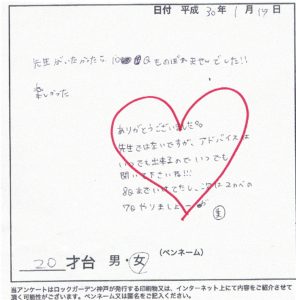 日付 平成 30年 1月 17日
先生がいなかったら 10 はのぼれませんでした!!
楽しかった
ありがとうございました
先生ではないですが、アドバイスは
いつでも出来るのでいつでも
聞いてくださいね!!!
8Qまでいけてたし、次は2かべの
7Qやりましょー
20 才台 男・女 (ペンネーム)
当アンケートはロックガーデン神戸が発行する印刷物又は、インターネット上にて内容をご紹介させて
頂く可能性がございます。ペンネーム又は匿名をご記入ください。